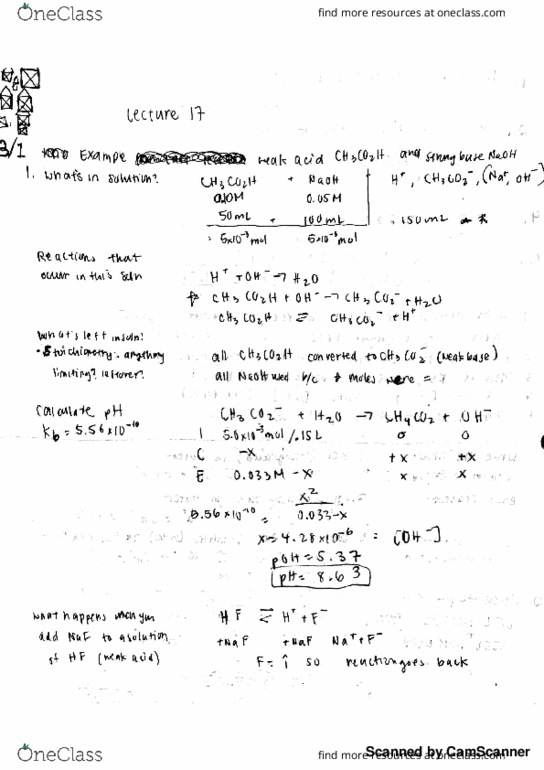 OneClass
find more resources at oneclass.com
Lecture 17
3/1
Example weak acid CH3CO2H and strong base NaOH
1. What's in solution? CH3CO2H + NaOH H⁺, CH3CO2⁻, (Na⁺, OH⁻)
0.10M 0.05M
50mL + 100mL = 150mL
= 5x10⁻³ mol 5x10⁻³ mol
Reactions that
occur in this soln
H⁺ + OH⁻ → H2O
CH3CO2H + OH⁻ → CH3CO2⁻ + H2O
CH3CO2H ⇌ CH3CO2⁻ + H⁺
What's left in soln?
• Stoichiometry: anything
limiting? leftover?
all CH3CO2H converted to CH3CO2⁻ (weak base)
all NaOH used b/c # moles were =
Calculate pH
Kb = 5.56x10⁻¹⁰
CH3CO2⁻ + H2O → CH4CO2 + OH⁻
I 5.0x10⁻³ mol/.15L 0 0
C -x +x +x
E 0.033M - x x x
5.56x10⁻¹⁰ = x²/0.033-x
x = 4.28x10⁻⁶ = [OH⁻]
pOH = 5.37
pH = 8.63
What happens when you
add NaF to a solution
of HF (weak acid)
HF ⇌ H⁺ + F⁻
+NaF +NaF Na⁺ + F⁻
F⁻ = ↑ so reaction goes back
OneClass
find more resources at oneclass.com
Scanned by CamScanner